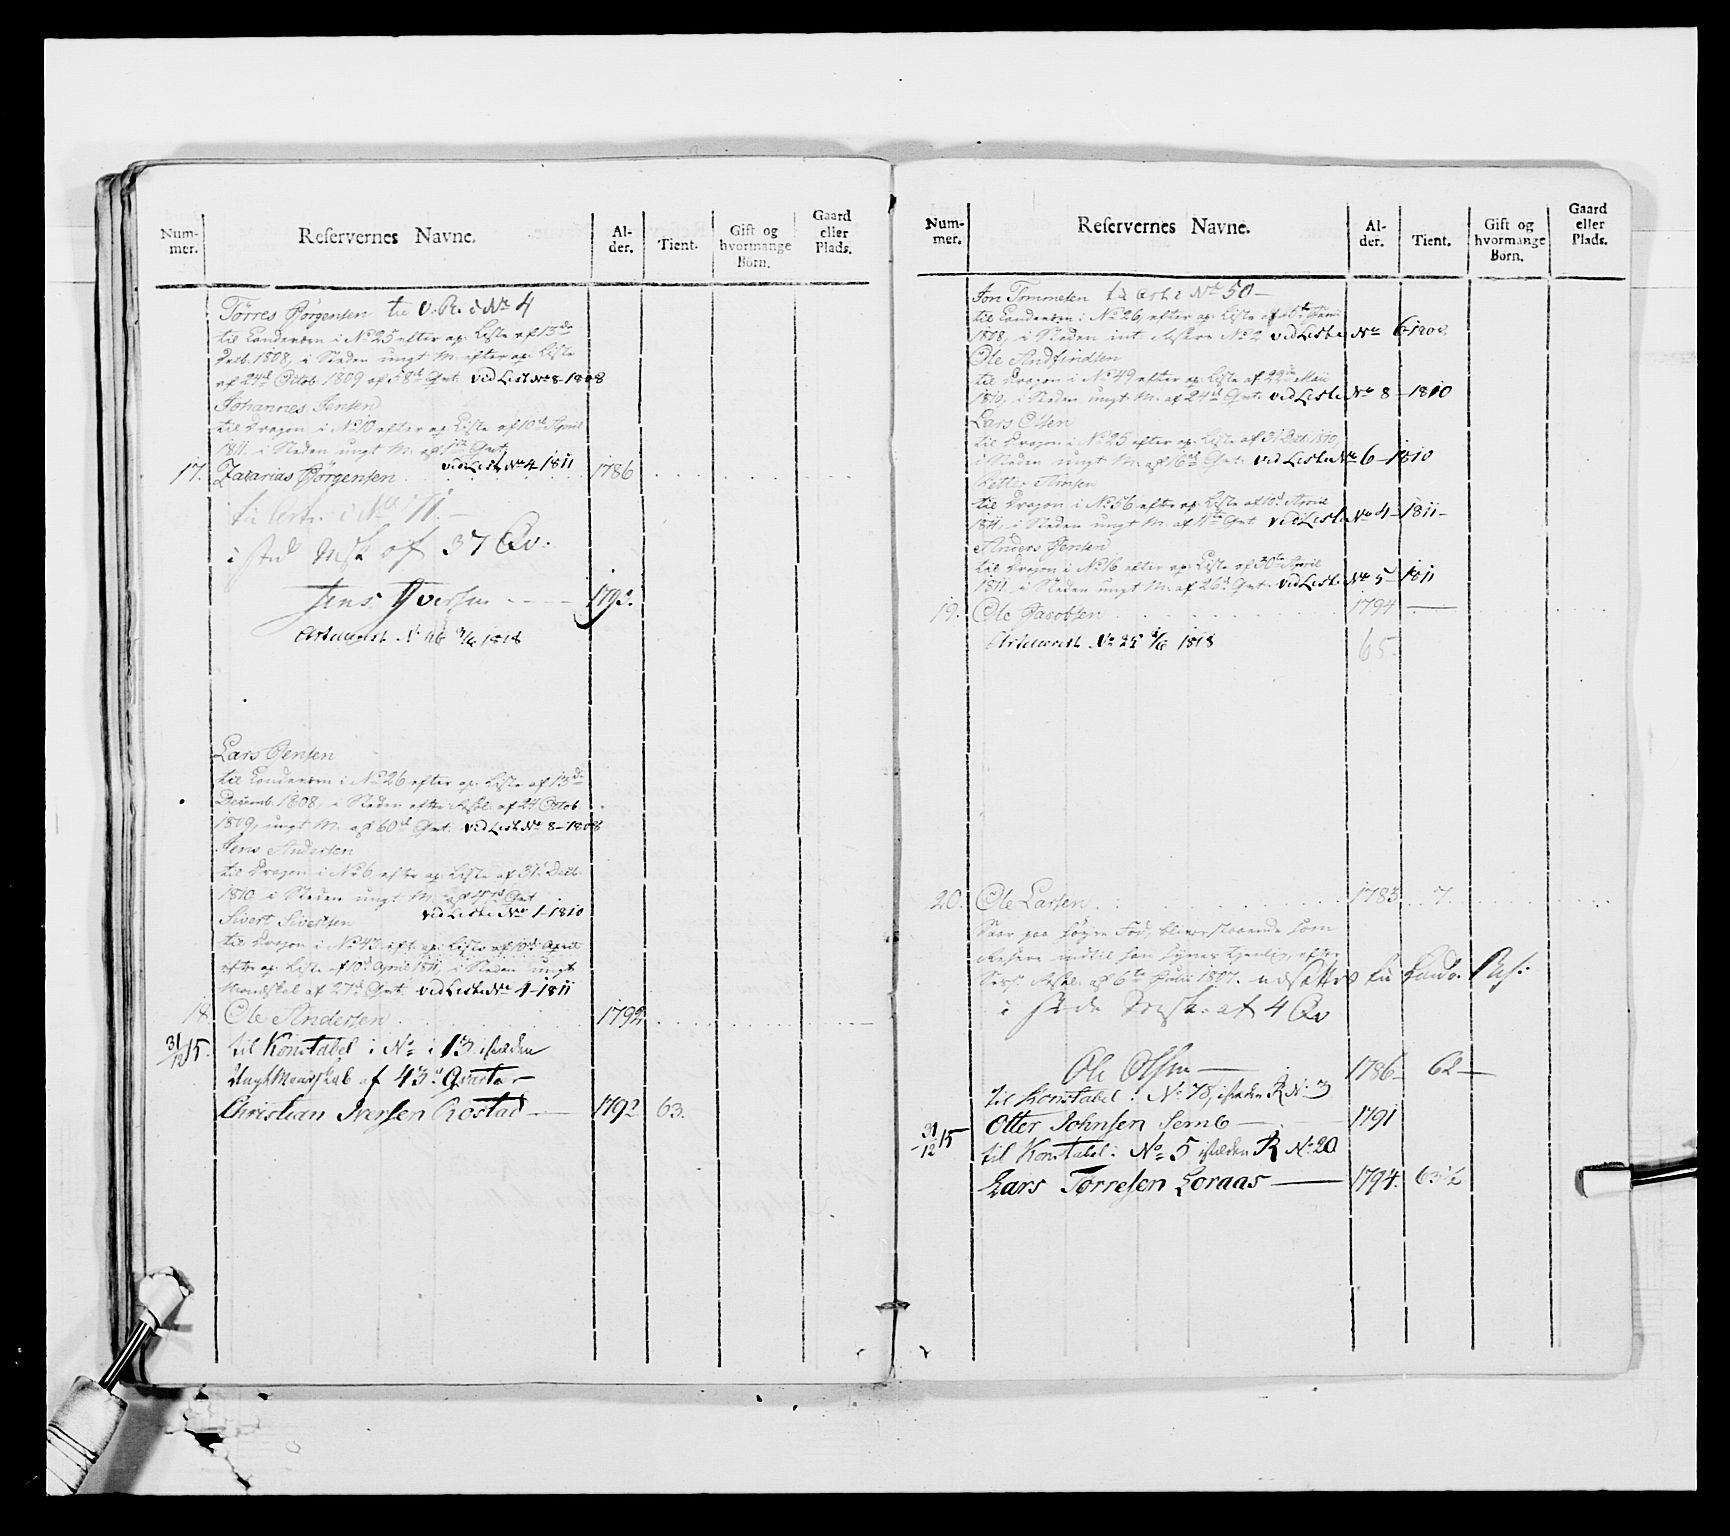 Num-
mer.
Reservernes Navne.
Al-
der.
Tient.
Gift og
hvormange
Börn.
Gaard
eller
Plads.
Törres Jörgensen til V. R. i No 4
til Landværn i No 25 efter ap. Liste af 13de
Decb. 1808, i Steden ungt M. efter ap. Liste
af 24d Octob 1809 af 58d Qvt. vid List No 8-1808
Johannes Jensen
til Dragon i No 10 efter ap. Liste af 10d April
1811. i Steden ungt M. af Qvt.
vid List No 4-1811
17. Zakarias Jörgensen 1786
til i No 71.
i sted Msk af 37 Qv.
Jens Iversen 1792.
No 46 1818
Lars Jensen
til Landværn i No 26 efter ap. Liste af 13de
Decemb. 1808, i Steden efter af 24 Octob
1809, ungt M. af 60d Qvt. vid List No 8-1808
Jens Andersen
til Dragon i No 6 efter ap. Liste af 31d Decb.
1810 i Steden ungt M. af 47d Qvt
vid Liste No 1-1810
Sivert Sivertsen
til Dragon i No 47 eft. ap. Liste af 10d April
efter ap. Liste af 10d April 1811, i Steden ungt
Mandskab af 27d Qvt. vid Liste No 4-1811
18 Ole Andersen 1792
31/12 15. til Konstabel i No 13 isteden
Ungt Mandskab af 43d Qvarter
Christian Iversen Rostad 1792 63.
Num-
mer.
Reservernes Navne.
Al-
der.
Tient.
Gift og
hvormange
Börn.
Gaard
eller
Plads.
Jon Tommesen til No 50
til Landværn i No 26, efter ap. Liste af
1808, i Steden int. Reserve No 2 vid Liste No 6-1808.
Ole Andfindsen
til Dragon i No 49 efter ap. Liste af 22de Maii
1810, i Steden ungt M. af 24d Qvt. vid Liste No 8-1810
Lars Olsen
til Dragon i No 25 efter ap. Liste af 31 Decb. 1810,
i Steden ungt M. af 16d Qvt. vid Liste No 6-1810
Petter Arnsen
til Dragon i No 56 efter ap. Liste af 10d April
1811. i Steden ungt M. af Qvt vid Liste No 4-1811
Anders Jensen
til Dragon i No 16 efter ap. Liste af 30te April
1811. i Steden ungt M. af 26d Qvt. vid Liste No 5-1811
19. Ole Jacobsen 1794
No 25 1818 65.
20. Ole Larsen 1783 7.
Saar paa höyre Fod, bliver staaende som
Reserve indtil han synes tjenlig, efter
af 6te Julii 1807. udsættes til Landv. Res:
i stede Msk. af 4 Qv
Ole Olsen 1786 62
til Konstabel i No 78, isteden R No 3
Otter Johnsen Semb 1791
31/12 15 til Konstabel i No 5 isteden R No 20
Lars Törresen Loraas 1794. 63 1/2